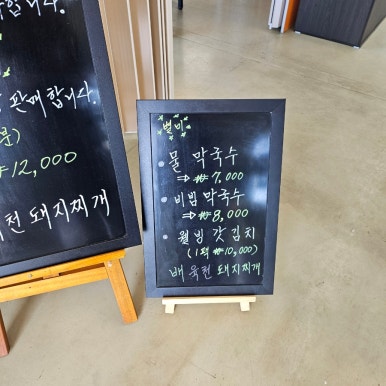 합니다.
판매합니다.
분)
₩12,000
천 돼지찌개
별미
물 막국수
⇒ ₩7,000
비빔 막국수
⇒ ₩8,000
월빙 갓김치
(1팩 ₩10,000)
배육천 돼지찌개